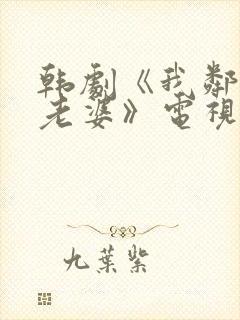 韩劇《我鄰
老婆》電視
九葉紫